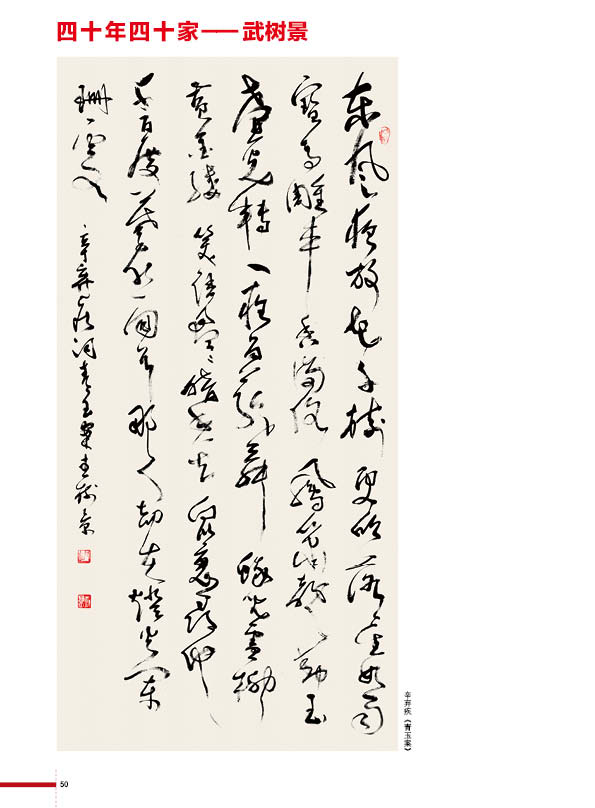 四十年四十家——武树景
东风夜放花千树 更吹落星如雨
寶馬雕車香满路 鳳箫聲動玉
壶光轉一夜鱼龍舞 蛾儿雪柳
黄金縷 笑語盈盈暗香去 众里尋他
千百度 蓦然回首那人却在燈火阑
珊处 辛弃疾词青玉案 树景
辛弃疾《青玉案》
50